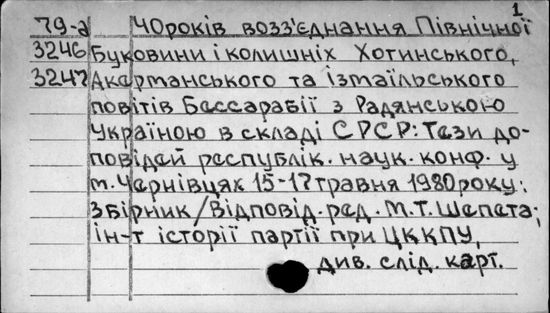 1
79-а 40 років возз'єднання Північної
3246 Буковини і колишніх Хотинського,
3247 Акерманського та Ізмаїльського
повітів Бессарабії з Радянською
Україною в складі СРСР: Тези до-
повідей республік. наук. конф. у
м. Чернівцях 15-17 травня 1980 року:
Збірник/Відповід. ред. М.Т. Шепета;
ін-т історії партії при ЦК КПУ,
див. слід. карт.